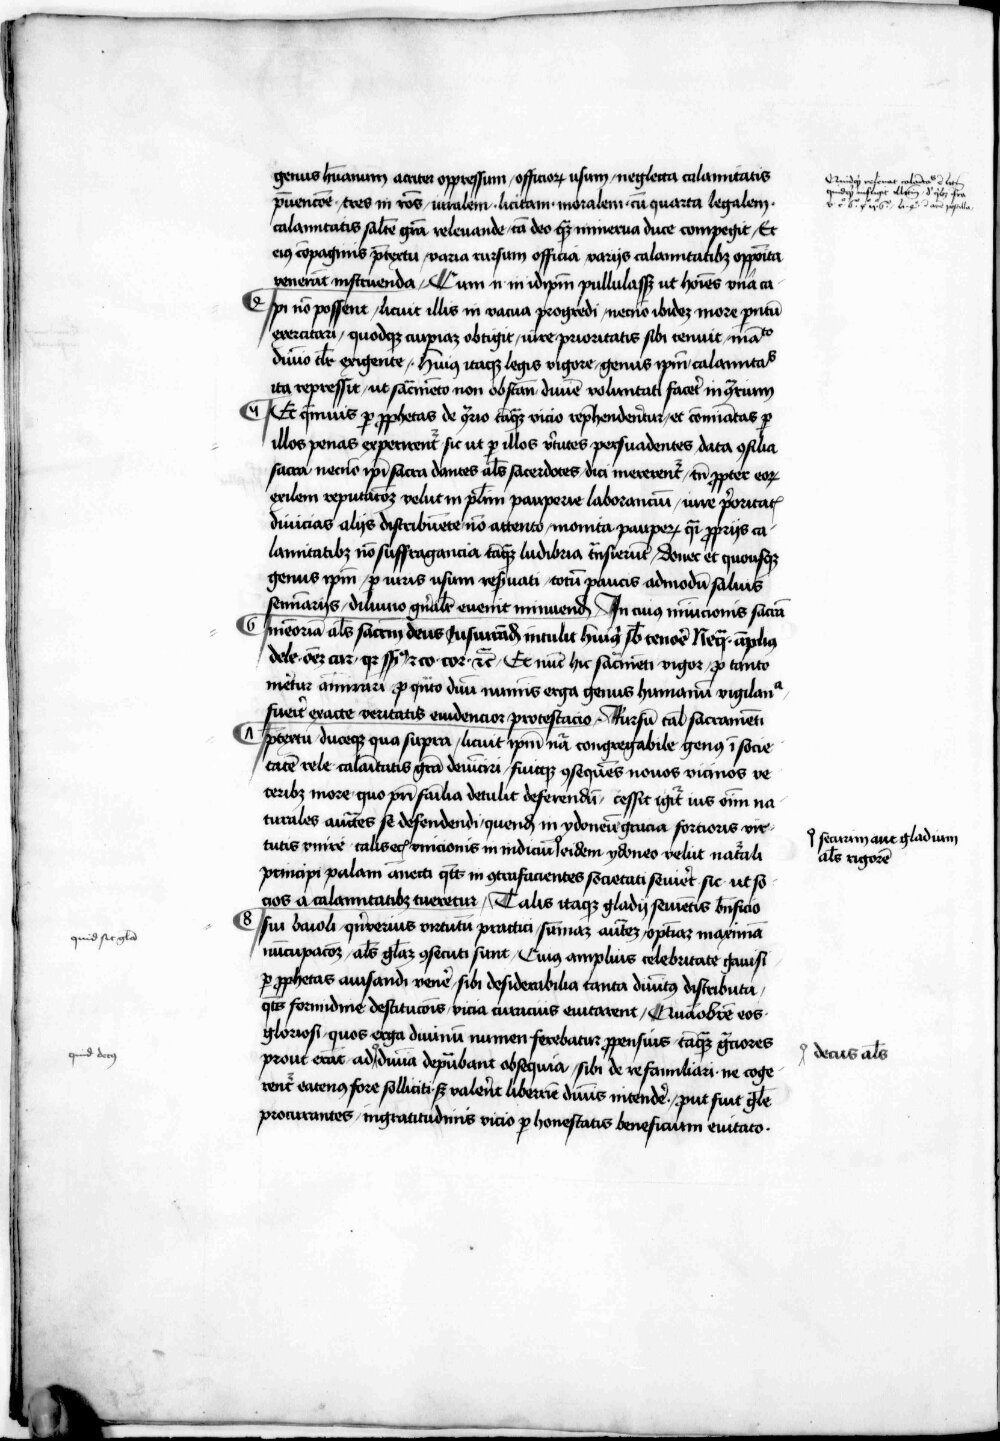 genus hūanum acriter oppressum / officioꝝ usum / neglecta calamitatis
p̄uencōe · tres in rōs / viralem · licitam · moralem · cū quarta legalem ·
calamitatis saltē grā relevande / tā deo qꝫ minerua duce compegit / Et
eiꝰ cōpaginis p̄textu / varia rursum officia / varijs calamitatibꝫ opposita
venerāt instruenda / Cum n̄ in idipm̄ pullulassꝫ ut hoīes vna ca-
2
pi nō possent / licuit illis in vacua progredi / necnō ibidez more pntū
exercitari / quodqꝫ cuipiaꝫ obtigit / iure prioritatis sibi tenuit / mā to
diuio tlr exigente / Huiꝰ itaqꝫ legis vigore / genus ipm̄ calamitas
ita repressit / ut sacmēto non obstan diuīe voluntati facet in
4
Et quis p prophetas de taqꝫ vicio rephendentur / et cominatas p
illos penas experirent sic ut p illos vtutes persuadentes / data ꝯsilia
sacra necnō ipi sacra dantes als sacerdotes / dici mererent / tn̄ propter eoꝝ
exilem reputacōꝫ velut in plim pauperie laboranciū / iure prioritat
diuicias alijs distribuere nō attento / monita pauperꝝ q̄i proprijs ca-
lamitatibꝫ nō suffragancia tāqꝫ ludibria trnsierūt / donec et quousqꝫ
genus ipm̄ / p iuris usum reseruati / totū paucis admodū saluis
seminarijs / diluuio gn̄alr euenit minuend / In cuiꝰ minucionis sacrā
6
memoriā als sacrm deus iusiurād intulit huiꝰ sb tenoē Neq̄ · āpliꝰ
dele · oēꝫ car · qr co · cor · rc̄ / Et nūc hic sacmēti vigor / p tanto
metur āmirari p quto diuū numis erga genus humanū vigilan
fuerit exacte veritatis euidencior protestacio · Rursū tal sacramēti
7
p̄textu / duceqꝫ qua supra / licuit ipm̄ nrā congregabile genꝰ ī socie
tatē rele calaītatis grā deuīciri / fuitqꝫ ꝯsequēs nouos vicinos ve
teribꝫ more quo pri faīlia detulit deferendū / cessit igit ius oīm na
turales auctes se defendendi / quend in ydoneū gracia forcioris vir-
tutis vnire talisqꝫ vnicionis in indiciū eidem ydoneo velut natali
principi palam ānecti in ꝯtrafacientes societati seuiet sic ut so-
cios a calamitatibꝫ tueretur / Talis itaqꝫ gladij seuiētis bn̄ficio
8
sui baioli qn̄verius virtutū practici / sūmaꝫ auteꝫ / optiaꝫ maximā
nūcupacōꝫ / als glaꝫ ꝯsecuti sunt / Cuiꝰ amplius celebritate gauisi
p prophetas auisandi venē / sibi desiderabilia tanta diuitꝰ distributa /
formidine destitucōis vicia curacius euitarent / Quaobrē eos
gloriosi quos erga diuinū numen ferebatur propensius / tāqꝫ grciores
prout erāt ad diuia deputabant obsequia / sibi de re familiari ne coge-
rent eatenꝰ fore solliciti sꝫ valerēt liberiꝰ diuīs intendē / put fuit gle
procurantes / ingratitudinis vicio p honestatis beneficium euitato ·
securim aut gladium
als rigorē
decus als
quid sit glad
quid decꝰ